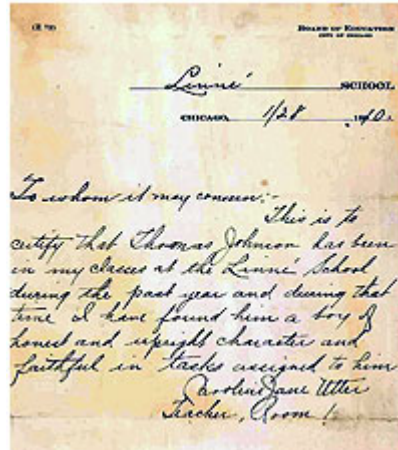 BOARD OF EDUCATION
CITY OF CHICAGO
Linné SCHOOL
CHICAGO, 1/28 1910.
To whom it may concern:-
This is to
certify that Thomas Johnson has been
in my classes at the Linné School
during the past year and during that
time I have found him a boy of
honest and upright character and
faithful in tasks assigned to him
Caroline Jane Utter
Teacher, Room 1.